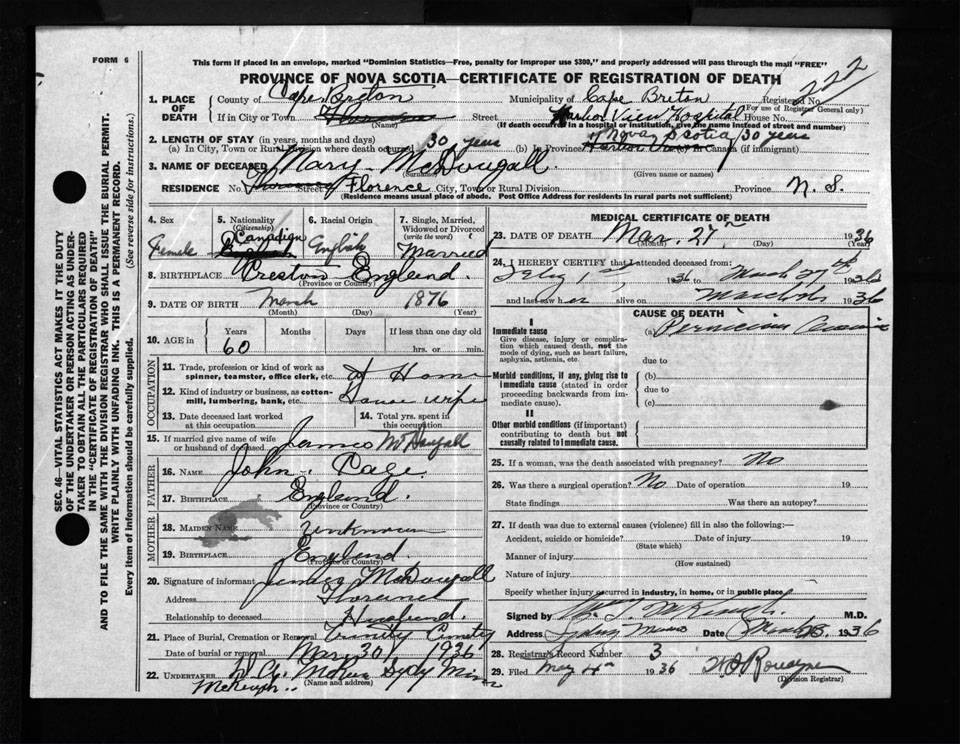 FORM 6
This form if placed in an envelope, marked "Dominion Statistics—Free, penalty for improper use $300," and properly addressed will pass through the mail "FREE"
PROVINCE OF NOVA SCOTIA—CERTIFICATE OF REGISTRATION OF DEATH
222
1. PLACE OF DEATH County of Cape Breton Municipality of Cape Breton Registered No.
(For use of Registrar General only)
If in City or Town Florence Street Harbor View Hospital House No.
(Name) (If death occurred in a hospital or institution, give the name instead of street and number)
2. LENGTH OF STAY (in years, months and days)
(a) In City, Town or Rural Division where death occurred 30 years (b) In Province Nova Scotia Canada (if immigrant) 30 years
3. NAME OF DECEASED Mary McDougall
(Surname) (Given name or names)
RESIDENCE No. Street Florence City, Town or Rural Division Province N. S.
(Residence means usual place of abode. Post Office Address for residents in rural parts not sufficient)
4. Sex Female
5. Nationality (Citizenship) Canadian
6. Racial Origin English
7. Single, Married, Widowed or Divorced (write the word) Married
8. BIRTHPLACE Preston England
(Province or Country)
9. DATE OF BIRTH March 1876
(Month) (Day) (Year)
10. AGE in Years 60 Months Days If less than one day old hrs. or min.
OCCUPATION
11. Trade, profession or kind of work as spinner, teamster, office clerk, etc. At Home
12. Kind of industry or business, as cotton-mill, lumbering, bank, etc. House wife
13. Date deceased last worked at this occupation
14. Total yrs. spent in this occupation
15. If married give name of wife or husband of deceased James McDougall
FATHER
16. NAME John Page
17. BIRTHPLACE England
(Province or Country)
MOTHER
18. MAIDEN NAME Unknown
19. BIRTHPLACE England
(Province or Country)
20. Signature of informant James McDougall
Address Florence
Relationship to deceased Husband
21. Place of Burial, Cremation or Removal Trinity Cemetery
Date of burial or removal Mar 30 1936
22. UNDERTAKER
(Name and address)
MEDICAL CERTIFICATE OF DEATH
23. DATE OF DEATH Mar. 27th 1936
(Month) (Day) (Year)
24. I HEREBY CERTIFY that I attended deceased from
Feby 1st 1936 to March 27th 1936
and last saw her alive on March 1936
CAUSE OF DEATH
I
Immediate cause (a) Pernicious
Give disease, injury or complication which caused death, not the mode of dying, such as heart failure, asphyxia, asthenia, etc.
due to
Morbid conditions, if any, giving rise to immediate cause (stated in order proceeding backwards from immediate cause).
(b)
due to
(c)
II
Other morbid conditions (if important) contributing to death but not causally related to immediate cause.
25. If a woman, was the death associated with pregnancy? No
26. Was there a surgical operation? No Date of operation 19
State findings Was there an autopsy?
27. If death was due to external causes (violence) fill in also the following:—
Accident, suicide or homicide? Date of injury 19
(State which)
Manner of injury
(How sustained)
Nature of injury
Specify whether injury occurred in industry, in home, or in public place
Signed by M.D.
Address Sydney Mines Date March 28. 1936
28. Registrar's Record Number 3
29. Filed May 4th 1936
(Division Registrar)
SEC. 46—VITAL STATISTICS ACT MAKES IT THE DUTY OF THE UNDERTAKER OR PERSON ACTING AS UNDERTAKER TO OBTAIN ALL THE PARTICULARS REQUIRED IN THE "CERTIFICATE OF REGISTRATION OF DEATH" AND TO FILE THE SAME WITH THE DIVISION REGISTRAR WHO SHALL ISSUE THE BURIAL PERMIT.
WRITE PLAINLY WITH UNFADING INK. THIS IS A PERMANENT RECORD.
Every item of information should be carefully supplied. (See reverse side for instructions.)